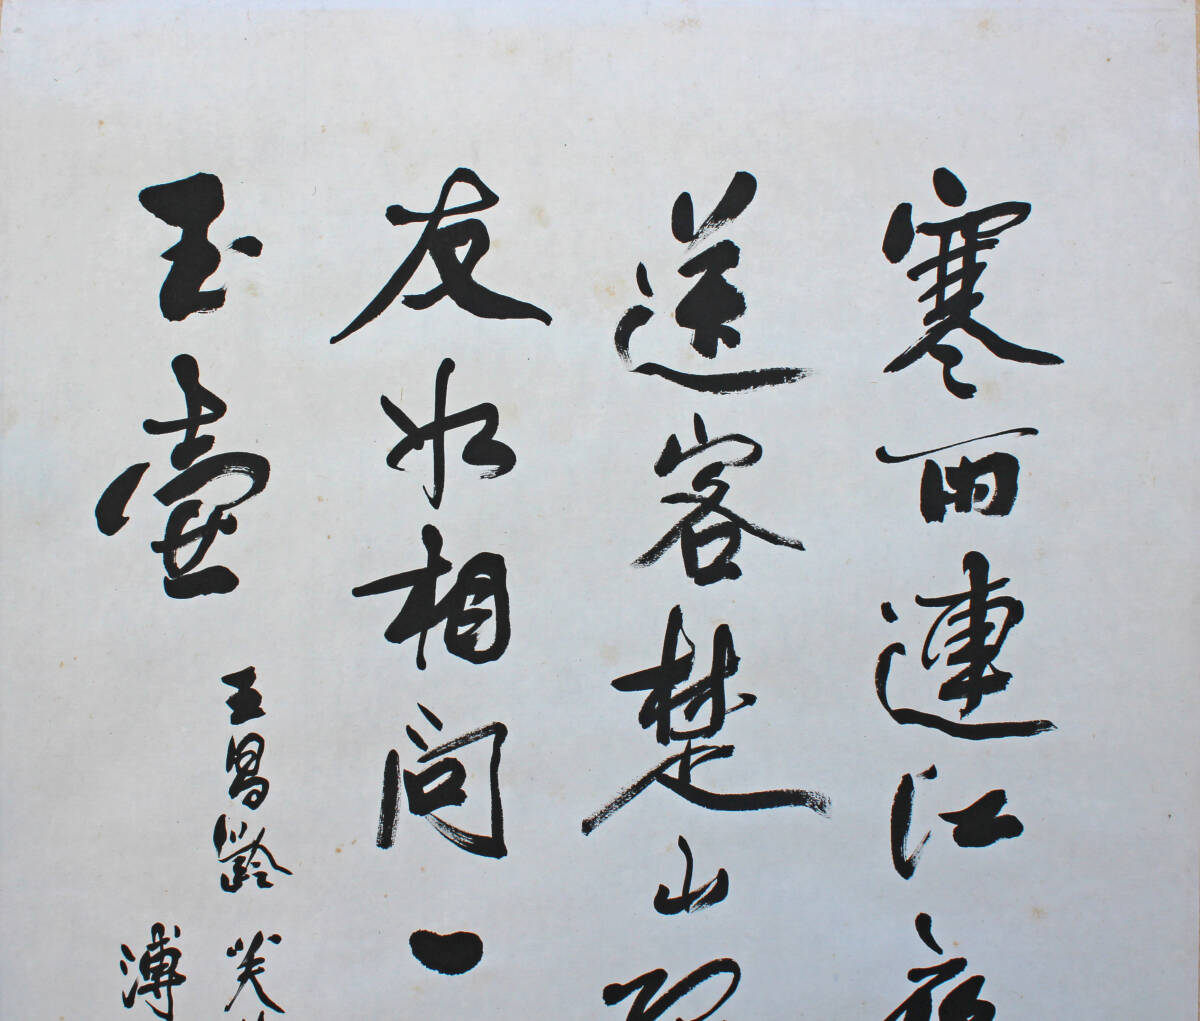 寒雨連江夜
送客楚山孤
友如相問一
玉壺
王昌齡芙
溥